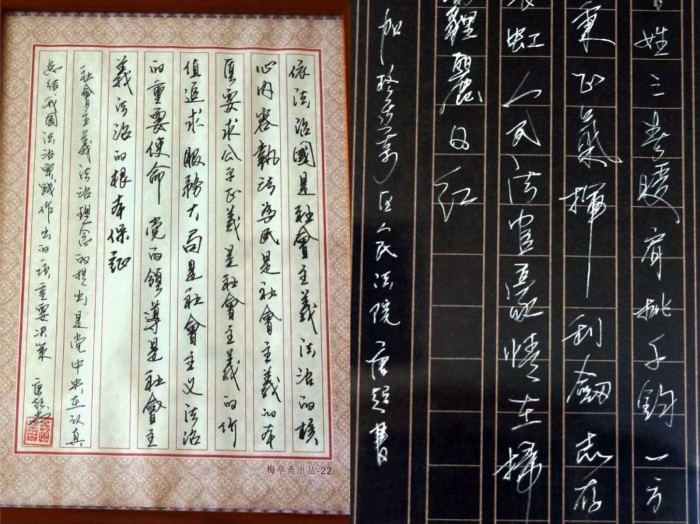 依法治國是社會主義法治的核
心内容執法為民是社會主義的本
质要求公平正義是社會主義的价
值追求服務大局是社會主义法治
的重要使命 党的領導是社會主
義法治的根本保証
社會主義法治理念的提出是党中央在认真
总结我国法治实践作出的一项重要决策 唐超書
梅亭斋出品-22
姓三春暖肩挑千鈞一方
秉正氣揮利劍志存
虹人民法官豪情在揚
疆麗日紅
加格達奇区人民法院唐超書